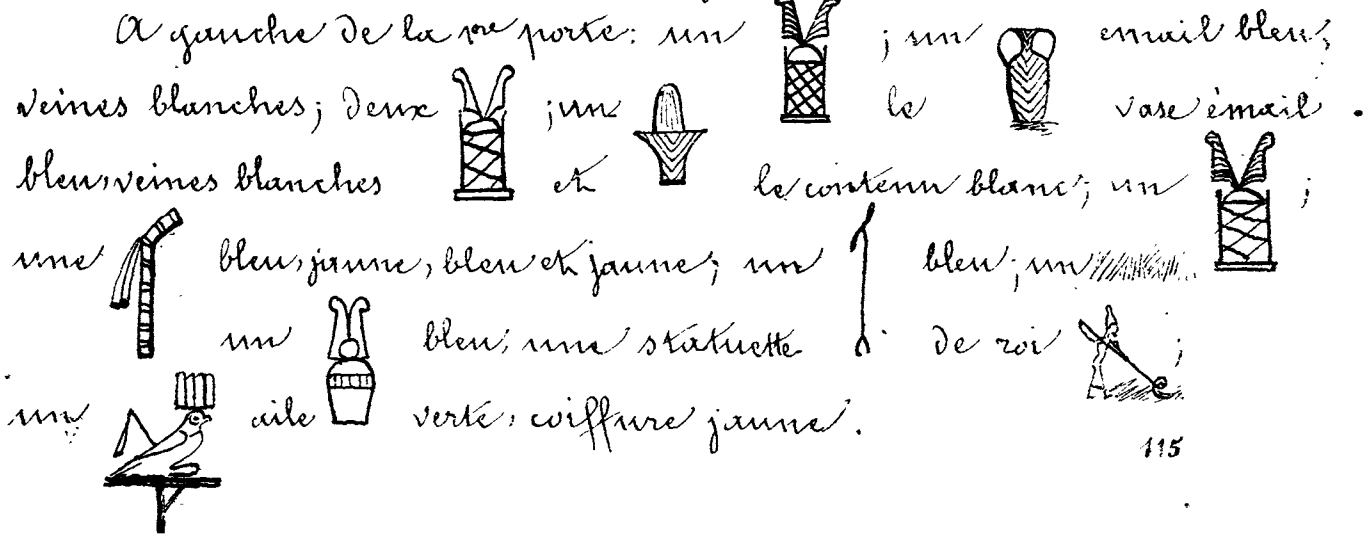 A gauche de la 1re porte: un ; un email bleu,
veines blanches; deux ; un le vase émail
bleu, veines blanches et le contenu blanc; un ;
une bleu, jaune, bleu et jaune; un bleu; un
un bleu; une statuette de roi ;
un aile verte, coiffure jaune.
115